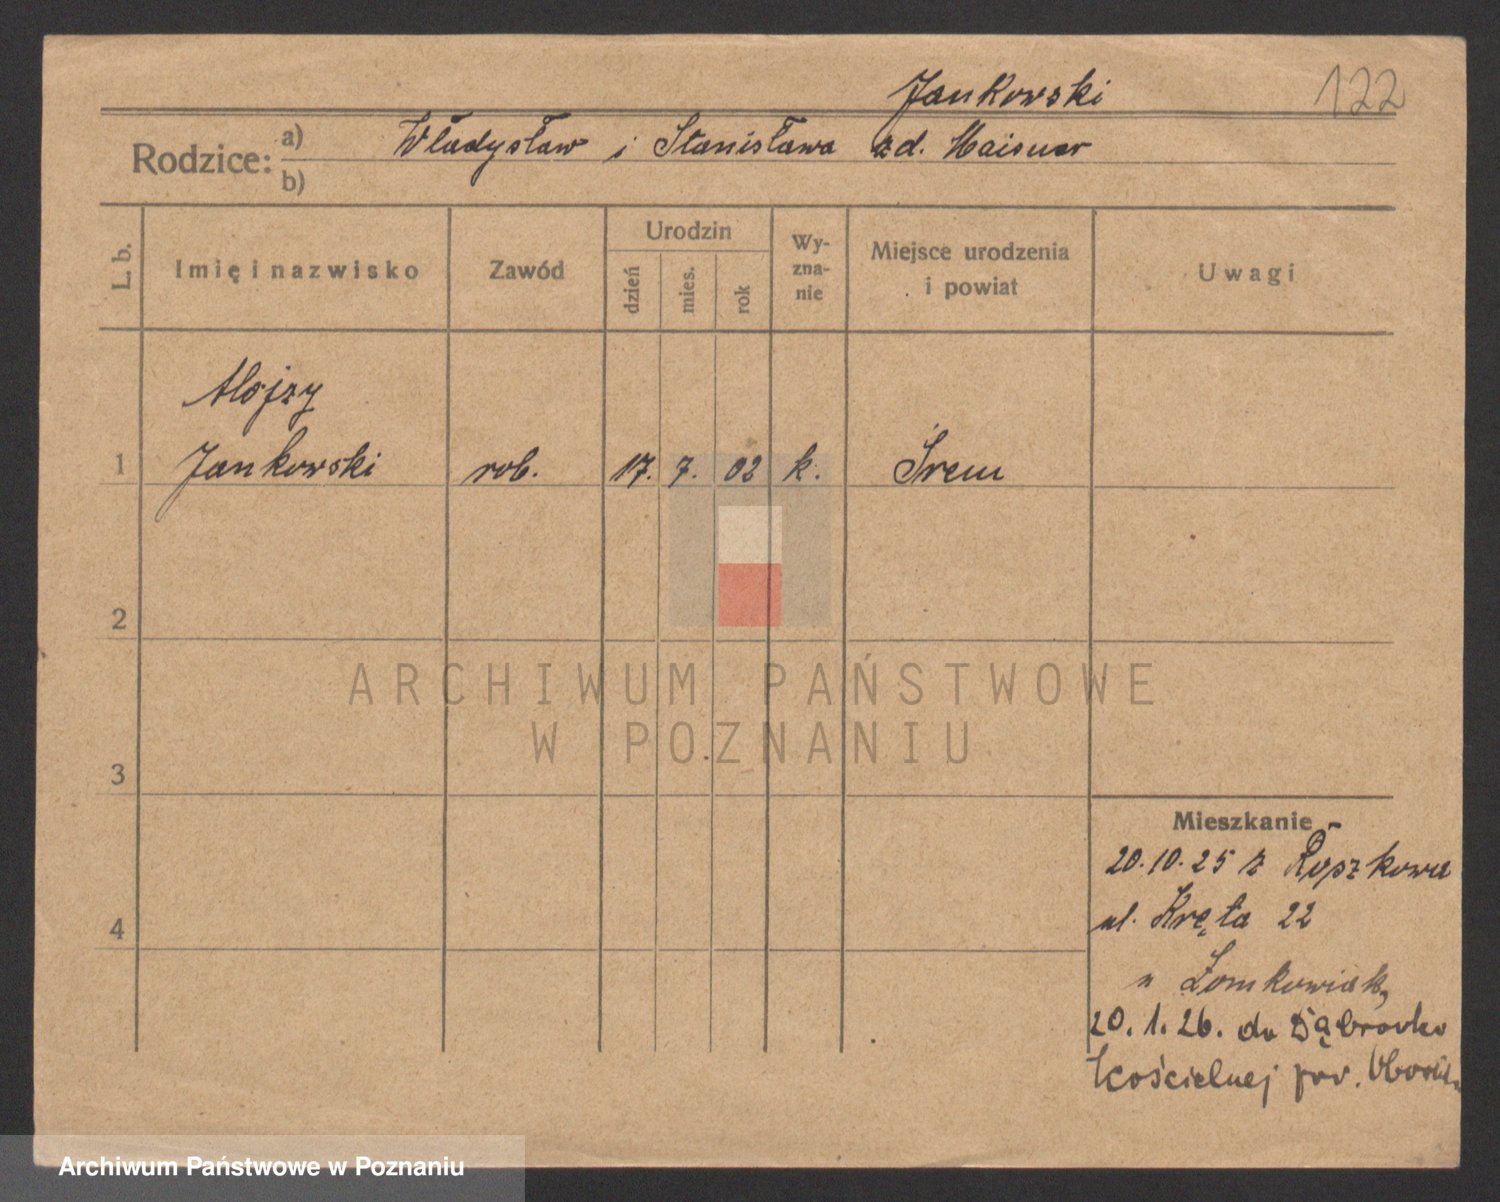 Jankowski 122
Rodzice: a) Władysław i Stanisława zd. Maisner
b)
L. b. Imię i nazwisko Zawód Urodzin dzień mies. rok Wy-zna-nie Miejsce urodzenia i powiat Uwagi
Alojzy
1 Jankowski rob. 17. 7. 02 k. Śrem
2
ARCHIWUM PAŃSTWOWE
W POZNANIU
3
Mieszkanie
20.10.25 z Ryszkowa
4 ul. Kręta 22
u
20.1.26. do Dąbrówko
Kościelnej pow.
Archiwum Państwowe w Poznaniu